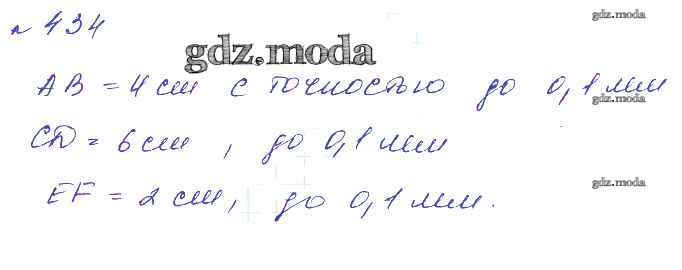 № 434
gdz.moda
gdz.moda
AB = 4 см с точностью до 0,1 мм
gdz.moda
CD = 6 см , до 0,1 мм
EF = 2 см, до 0,1 мм.
gdz.moda